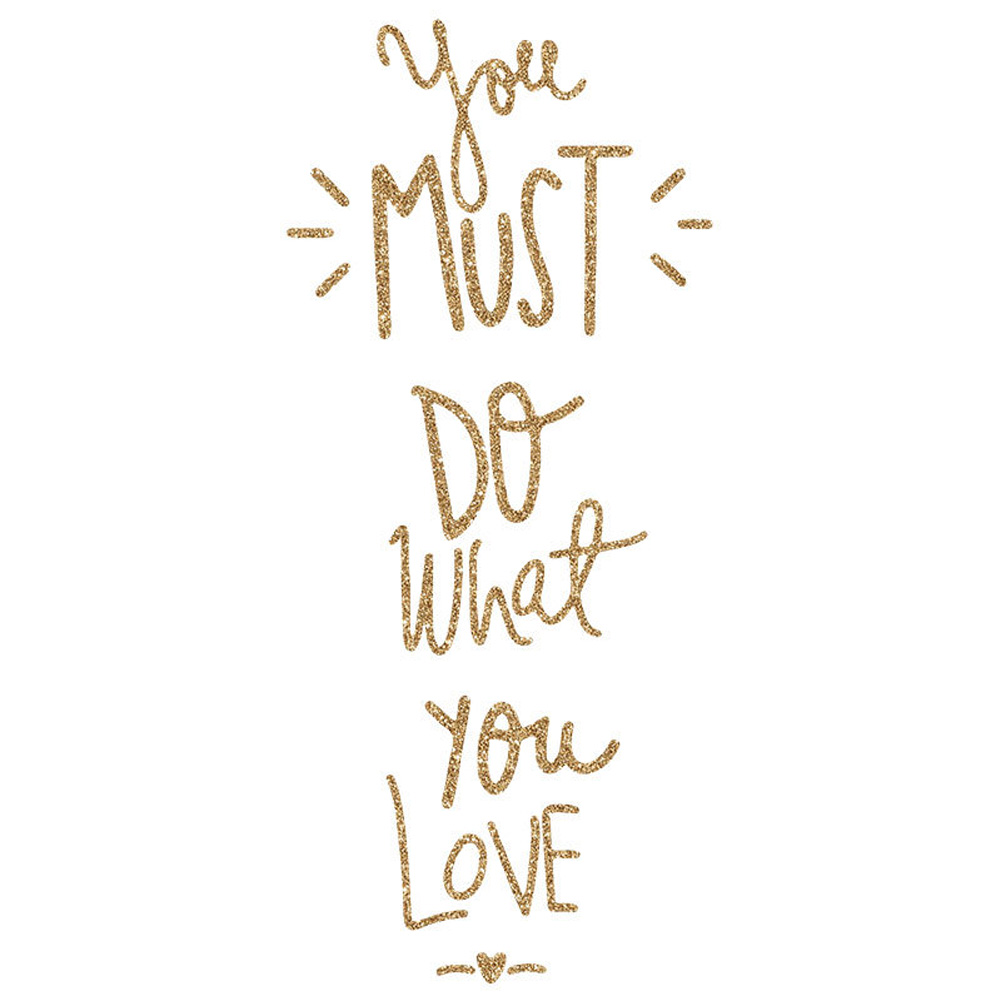 You
MUST
DO
What
You
LOVE